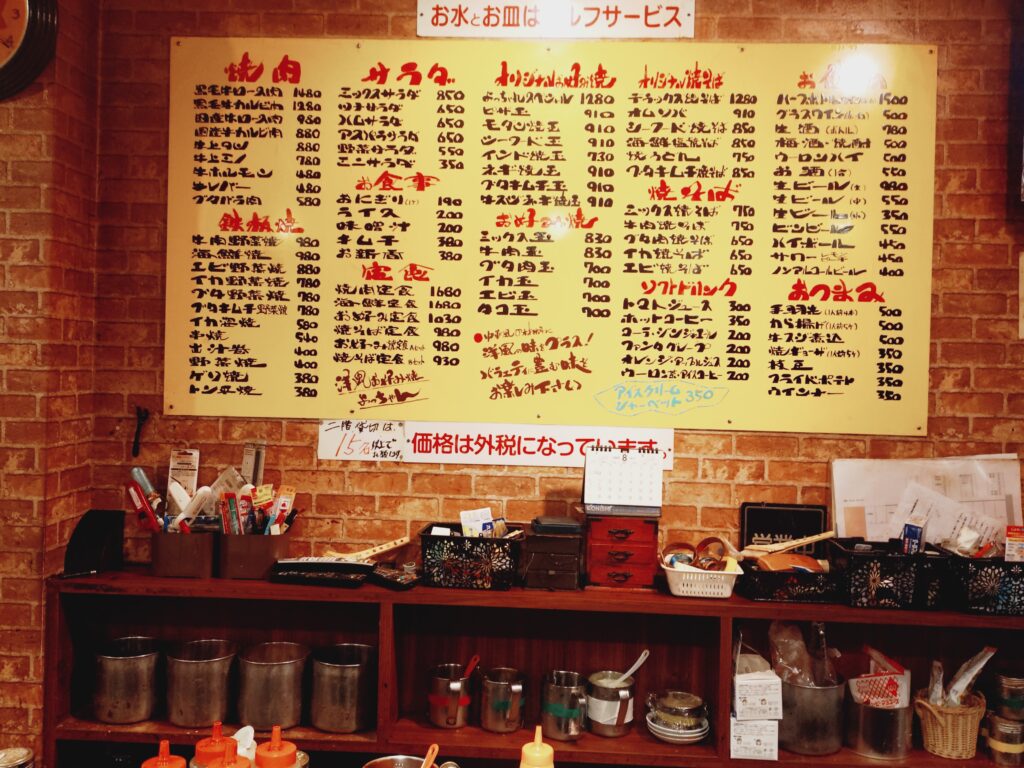 お水とお皿は ルフサービス
焼肉
黒毛牛ロース肉 1480
黒毛牛カルビ肉 1280
国産牛ロース肉 980
国産牛カルビ肉 880
牛上タン 880
牛上ミノ 780
牛ホルモン 480
牛レバー 480
ブタバラ肉 580
鉄板焼
牛肉野菜焼 980
海鮮焼 980
エビ野菜焼 880
イカ野菜焼 780
ブタ野菜焼 780
ブタキムチ野菜焼 780
イカ 焼 580
焼 540
400
野菜焼 400
ゲソ焼 380
トン 焼 380
サラダ
ミックスサラダ 850
ツナサラダ 650
ハムサラダ 650
アスパラサラダ 650
野菜サラダ 550
ミニサラダ 350
お食事
おにぎり(1ケ) 190
ライス 200
味噌汁 200
キムチ 380
お新香 380
定食
焼肉定食 1680
海鮮定食 1680
お好み定食 1030
焼そば定食 980
お好み焼定食 Aセット 980
焼そば定食 Bセット 930
洋風お好み焼
よっちゃん
オリジナルお好み焼
よっちゃんスペシャル 1280
ピザ玉 910
モダン焼玉 910
シーフード玉 910
インド焼玉 730
ネギ焼玉 910
ブタキムチ玉 910
牛スジネギ焼玉 910
お好み焼
ミックス玉 830
牛肉玉 830
ブタ肉玉 700
イカ玉 700
エビ玉 700
タコ玉 700
洋風の味をプラス!
バラエティに富む味を
お楽しみ下さい
オリジナル焼そば
デラックス焼そば 1280
オムソバ 910
シーフード焼そば 850
海鮮塩焼そば 850
焼うどん 750
ブタキムチ焼そば 850
焼そば
ミックス焼そば 750
牛肉焼そば 750
ブタ肉焼そば 650
イカ焼そば 650
エビ焼そば 650
ソフトドリンク
トマトジュース 300
ホットコーヒー 350
コーラ・ジンジャエール 200
ファンタグレープ 200
オレンジ・アップルジュース 200
ウーロン茶・アイスコーヒー 200
アイスクリーム
シャーベット 350
お
1500
グラスワイン 500
生酒 780
梅酒・焼酎 500
ウーロンハイ 500
お酒 550
生ビール(大) 980
生ビール(中) 550
生ビール(小) 350
ビンビール 550
ハイボール 450
サワー 450
ノンアルコールビール 400
おつまみ
手羽先(1人前4本) 500
から揚げ(1人前5ケ) 500
牛スジ煮込 500
焼ギョーザ(1人前5ケ) 350
枝豆 350
フライドポテト 350
ウインナー 350
二階貸切は、
15名
価格は外税になっています。
8